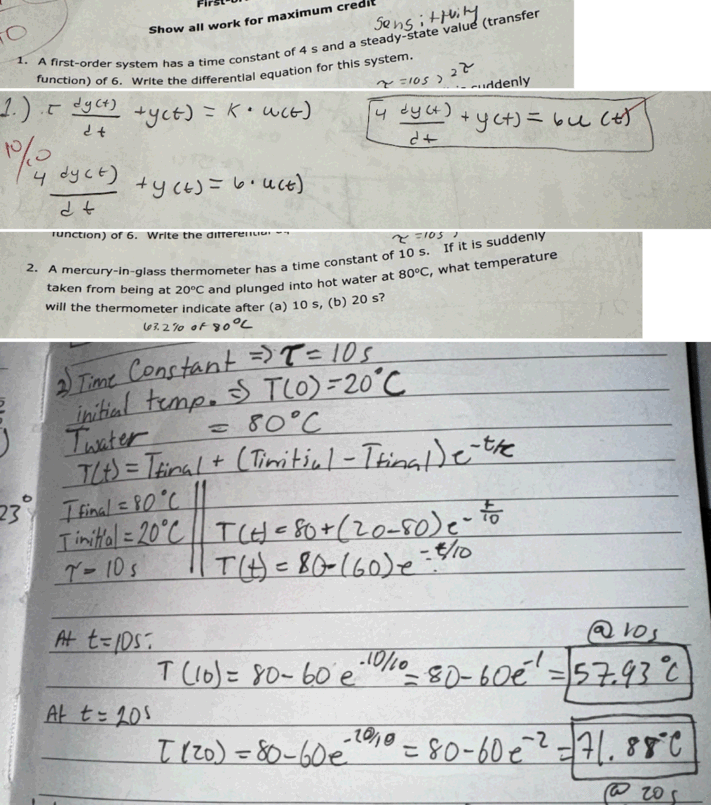 First-
Show all work for maximum credit
Sensitivity
1. A first-order system has a time constant of 4 s and a steady-state value (transfer
function) of 6. Write the differential equation for this system.
τ = 10s > 2τ
suddenly
1.) τ dy(t)/dt + y(t) = K · u(t)
4 dy(t)/dt + y(t) = 6u(t)
10/10
4 dy(t)/dt + y(t) = 6 · u(t)
function) of 6. Write the differential
τ = 10s
2. A mercury-in-glass thermometer has a time constant of 10 s. If it is suddenly
taken from being at 20°C and plunged into hot water at 80°C, what temperature
will the thermometer indicate after (a) 10 s, (b) 20 s?
63.2% of 80°C
2) Time Constant => τ = 10s
initial temp. => T(0) = 20°C
Twater = 80°C
T(t) = Tfinal + (Tinitial - Tfinal) e^-t/τ
23°
Tfinal = 80°C
Tinitial = 20°C
T(t) = 80 + (20-80) e^-t/10
τ = 10 s
T(t) = 80 - (60) e^-t/10
At t=10s:
@ 10s
T(10) = 80 - 60 e^-10/10 = 80 - 60e^-1 = 57.93°C
At t = 20s
T(20) = 80 - 60e^-20/10 = 80 - 60e^-2 = 71.88°C
@ 20s